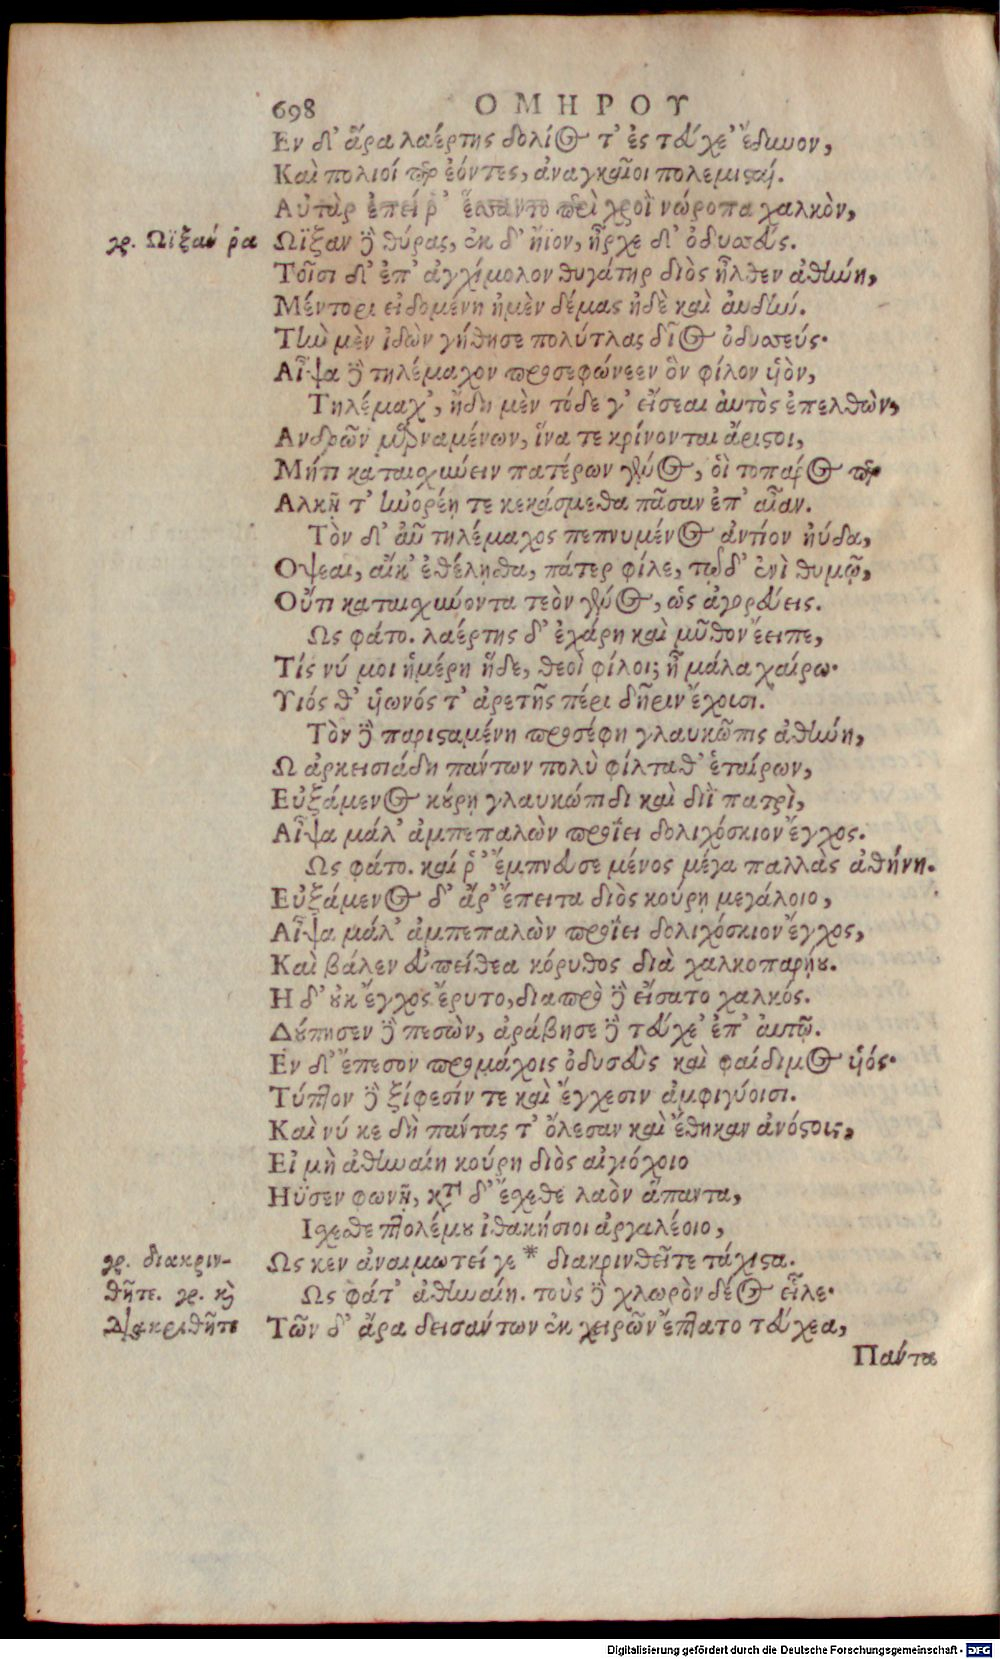 698 ΟΜΗΡΟΥ
Εν δ' ἄρα λαέρτης δολίος τ' ἐς τεύχε' ἔδυνον,
Καὶ πολιοί περ ἐόντες, ἀναγκαῖοι πολεμισταί.
Αὐτὰρ ἐπεί ῥ' ἕσσαντο περὶ χροῒ νώροπα χαλκὸν,
γρ. Ωϊξαν ῥα Ωϊξαν δὲ θύρας, ἐκ δ' ἤϊον, ἦρχε δ' ὀδυσσεύς.
Τοῖσι δ' ἐπ' ἀγχίμολον θυγάτηρ διὸς ἦλθεν ἀθήνη,
Μέντορι εἰδομένη ἠμὲν δέμας ἠδὲ καὶ αὐδήν.
Τὴν μὲν ἰδὼν γήθησε πολύτλας δῖος ὀδυσσεύς·
Αἶψα δὲ τηλέμαχον προσεφώνεεν ὃν φίλον υἱὸν,
Τηλέμαχ', ἤδη μὲν τόδε γ' εἴσεαι αὐτὸς ἐπελθὼν,
Ανδρῶν μαρναμένων, ἵνα τε κρίνονται ἄριστοι,
Μήτι καταισχύνειν πατέρων γένος, οἳ τοπάρος περ
Αλκῇ τ' ἠνορέῃ τε κεκάσμεθα πᾶσαν ἐπ' αἶαν.
Τὸν δ' αὖ τηλέμαχος πεπνυμένος ἀντίον ηὔδα,
Οψεαι, αἴκ' ἐθέλησθα, πάτερ φίλε, τῷδ' ἐνὶ θυμῷ,
Οὔτι καταισχύνοντα τεὸν γένος, ὡς ἀγορεύεις.
Ως φάτο. λαέρτης δ' ἐχάρη καὶ μῦθον ἔειπε,
Τίς νύ μοι ἡμέρη ἥδε, θεοὶ φίλοι; ἦ μάλα χαίρω·
Υιός θ' υἱωνός τ' ἀρετῆς πέρι δῆριν ἔχουσι.
Τὸν δὲ παρισταμένη προσέφη γλαυκῶπις ἀθήνη,
Ω ἀρκεισιάδη πάντων πολὺ φίλταθ' ἑταίρων,
Εὐξάμενος κούρῃ γλαυκώπιδι καὶ διῒ πατρὶ,
Αἶψα μάλ' ἀμπεπαλὼν προΐει δολιχόσκιον ἔγχος.
Ως φάτο. καί ῥ' ἔμπνευσε μένος μέγα παλλὰς ἀθήνη.
Εὐξάμενος δ' ἄρ' ἔπειτα διὸς κούρῃ μεγάλοιο,
Αἶψα μάλ' ἀμπεπαλὼν προΐει δολιχόσκιον ἔγχος,
Καὶ βάλεν εὐπείθεα κόρυθος διὰ χαλκοπαρῄου.
Η δ' οὐκ ἔγχος ἔρυτο, διαπρὸ δὲ εἴσατο χαλκός.
Δούπησεν δὲ πεσὼν, ἀράβησε δὲ τεύχε' ἐπ' αὐτῷ.
Εν δ' ἔπεσον προμάχοις ὀδυσεὺς καὶ φαίδιμος υἱός·
Τύπτον δὲ ξίφεσίν τε καὶ ἔγχεσιν ἀμφιγύοισι.
Καὶ νύ κε δὴ πάντας τ' ὄλεσαν καὶ ἔθηκαν ἀνόστους,
Εἰ μὴ ἀθηναίη κούρη διὸς αἰγιόχοιο
Ηϋσεν φωνῇ, κατὰ δ' ἔσχεθε λαὸν ἅπαντα,
Ισχεσθε πτολέμου ἰθακήσιοι ἀργαλέοιο,
γρ. διακριν- Ως κεν ἀναιμωτεί γε * διακρινθεῖτε τάχιστα.
θῆτε. γρ. καὶ Ως φάτ' ἀθηναίη. τοὺς δὲ χλωρὸν δέος εἷλε·
διακριθῆτε Τῶν δ' ἄρα δεισάντων ἐκ χειρῶν ἔπτατο τεύχεα,
Πάντα
Digitalisierung gefördert durch die Deutsche Forschungsgemeinschaft - DFG